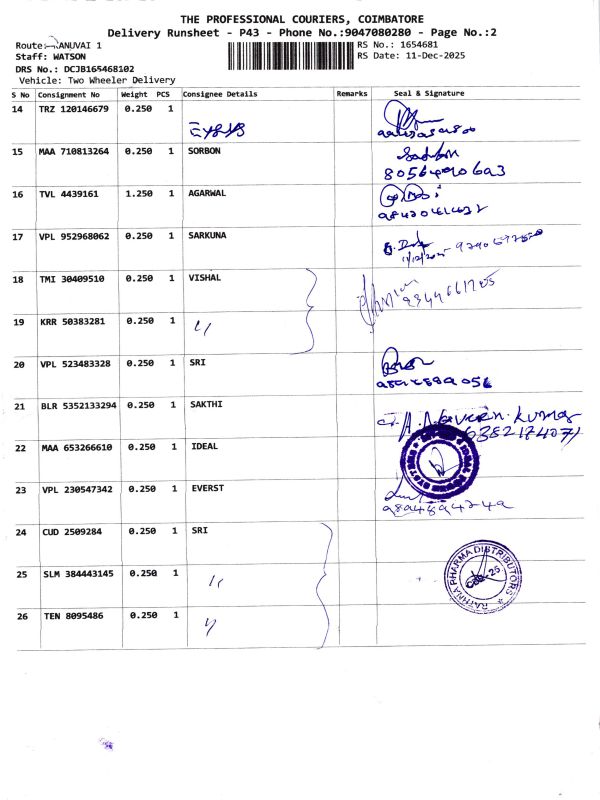 THE PROFESSIONAL COURIERS, COIMBATORE
Delivery Runsheet - P43 - Phone No.:9047080280 - Page No.:2
Route: ANUVAI 1
RS No.: 1654681
Staff: WATSON
RS Date: 11-Dec-2025
DRS No.: DCJB165468102
Vehicle: Two Wheeler Delivery
S No Consignment No Weight PCS Consignee Details Remarks Seal & Signature
14 TRZ 120146679 0.250 1
15 MAA 710813264 0.250 1 SORBON
16 TVL 4439161 1.250 1 AGARWAL
17 VPL 952968062 0.250 1 SARKUNA
11/12/2025
18 TMI 30409510 0.250 1 VISHAL
19 KRR 50383281 0.250 1 "
20 VPL 523483328 0.250 1 SRI
21 BLR 5352133294 0.250 1 SAKTHI
A. Naveen Kumar
6382184071
22 MAA 653266610 0.250 1 IDEAL
23 VPL 230547342 0.250 1 EVERST
24 CUD 2509284 0.250 1 SRI
25 SLM 384443145 0.250 1 "
RATHNA PHARMA DISTRIBUTORS
26 TEN 8095486 0.250 1 "